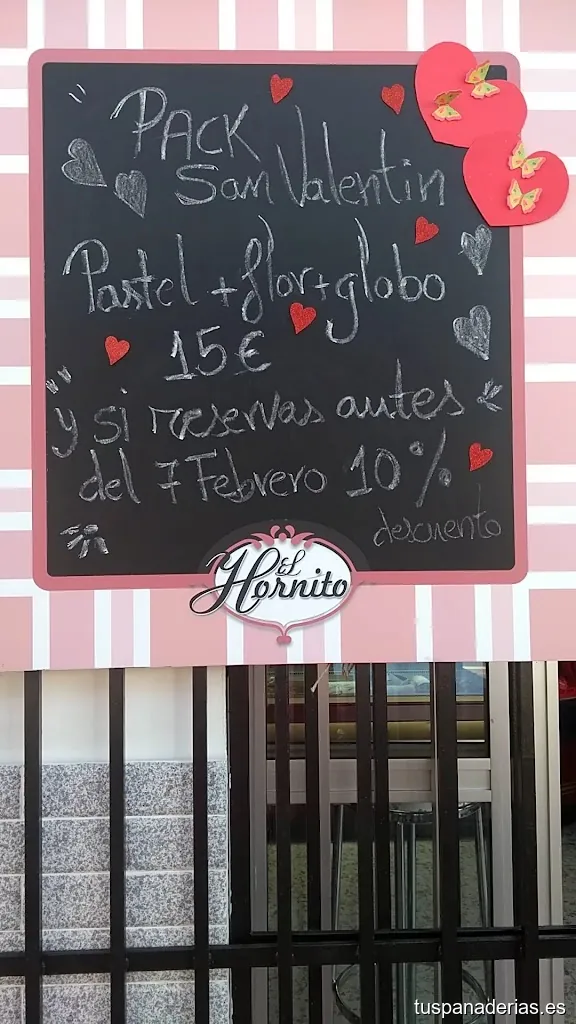 PACK
San Valentin
Pastel + flor + globo
15€
y si reservas antes
del 7 Febrero 10%
descuento
El
Hornito
tuspanaderias.es